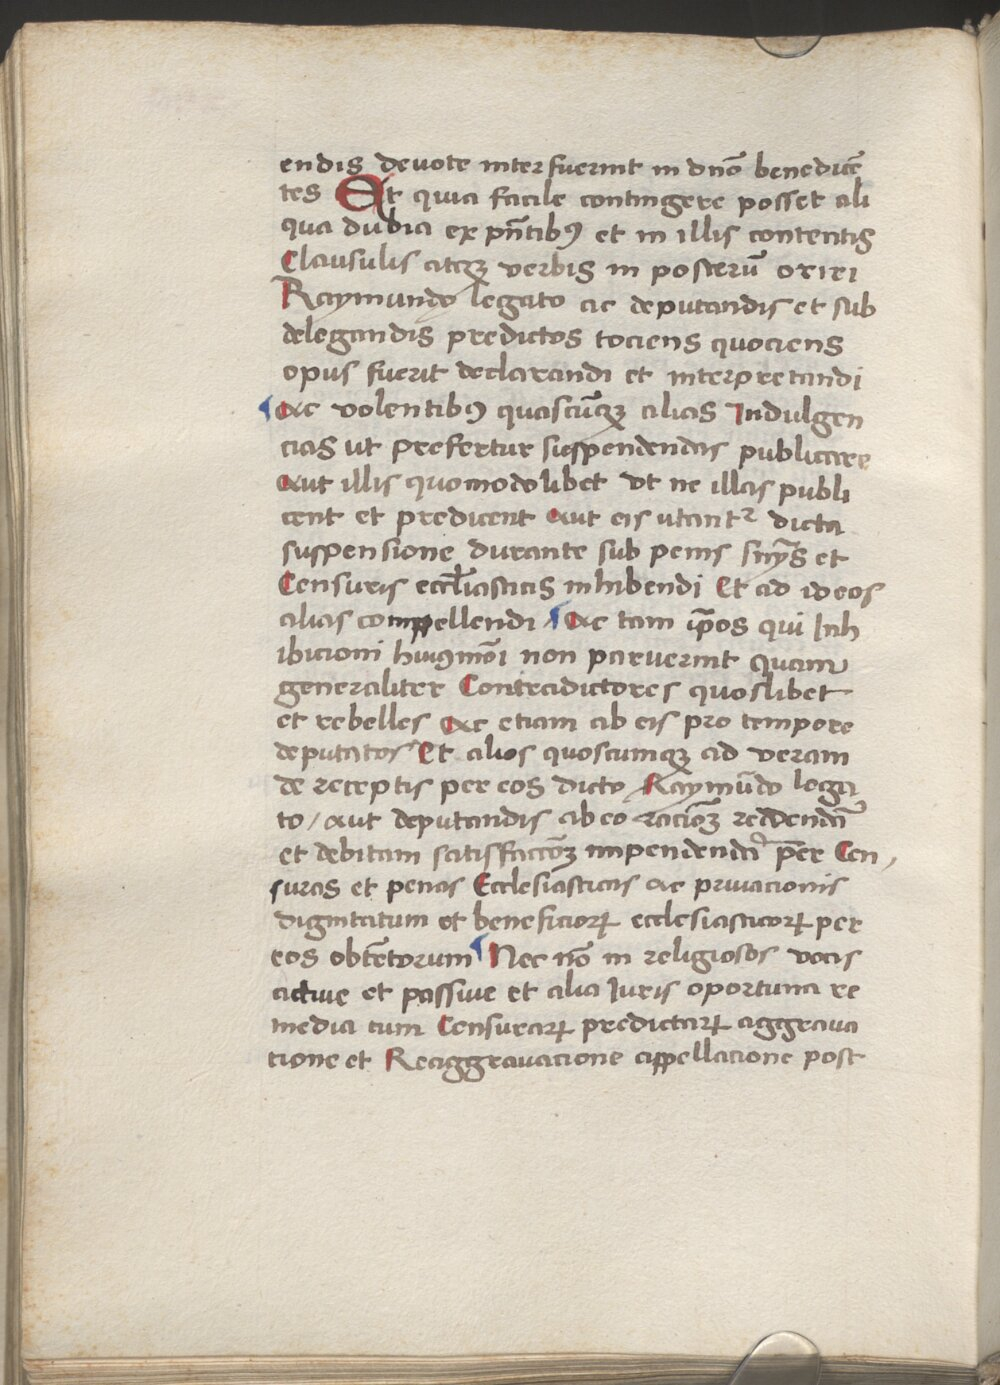 endis deuote interfuerint in dnō benedicē
tes Et quia facile contingere posset ali
qua dubia ex pn̄tibꝰ et in illis contentis
Clausulis atqꝫ verbis in posterū oriri
Raymundo legato ac deputandis et sub
delegandis predictos tociens quociens
opus fuerit declarandi et interpretandi
Ac volentibꝰ quascūqꝫ alias Indulgen
cias ut prefertur suspendendas publicare
Aut illis quomodolibet vt ne illas publi
cent et predicent Aut eis utantᷣ dicta
suspensione durante sub penis et
Censuris eccl̄iasticis inhibendi Et ad id eos
alias compellendi Ac tam ip̄os qui Inh
ibicioni huiꝰmōi non paruerint quam
generaliter Contradictores quoslibet
et rebelles Ac etiam ab eis pro tempore
deputatos Et alios quoscumqꝫ ad veram
de receptis per eos dicto Raymūdo lega
to / Aut deputandis ab eo racioēꝫ reddendā
et debitam satisfaccoēꝫ impendendā per Cen
suras et penas Ecclesiasticas Ac priuacionis
dignitatum et beneficioꝝ ecclesiasticoꝝ per
eos obtētorum Nec nō in religiosos vocis
actiue et passiue et alia Iuris oportuna re
media cum Censuraꝝ predictaꝝ aggraua
tione et Reaggrauacione appellacione post